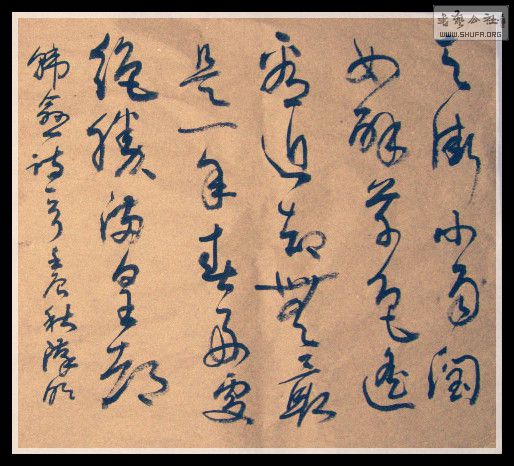 書藝公社
WWW.SHUFA.ORG
天街小雨潤
如酥草色遙
看近却無最
是一年春好處
絕勝滿皇都
韩愈诗一首壬辰秋